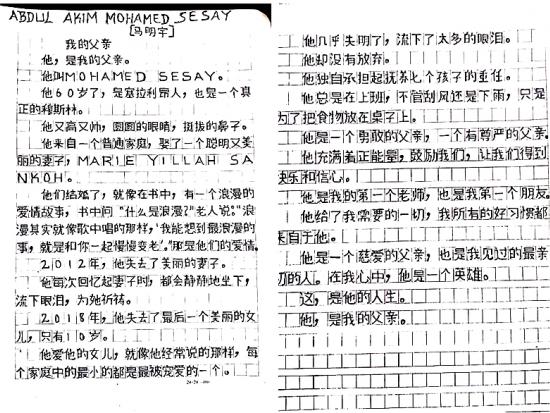 ABDUL AKIM MOHAMED SESAY
[马明宇]
我的父亲
他，是我的父亲。
他叫MOHAMED SESAY。
他60岁了，是塞拉利昂人，也是一个真
正的利斯林。
他又高又帅，圆圆的眼睛，挺拔的鼻子。
他来自一个普通家庭，娶了一个聪明又美
丽的妻子，MARIE YILLAH SA
NKOH。
他们结婚了，就像在书中，有一个浪漫的
爱情故事，书中问“什么是浪漫？”老人说：“浪
漫其实就像歌中唱的那样，‘我能想到最浪漫的
事，就是和你一起慢慢变老’。”那是他们的爱情。
2012年，他失去了美丽的妻子。
他每次回忆起妻子时，都会静静地坐下，
流下眼泪，为她祈祷。
2018年，他失去了最后一个美丽的女
儿，只有10岁。
他爱他的女儿，就像他经常说的那样，每
个家庭中的最小的都是最被宠爱的一个。
他几乎失明了，流下了太多的眼泪。
他却没有放弃。
他独自承担起抚养七个孩子的重任。
他总是在上班，不管刮风还是下雨，只是
为了把食物放在桌子上。
他是一个勇敢的父亲，一个有尊严的父亲。
他充满着正能量，鼓励我们，让我们得到
快乐和信心。
他是我的第一个老师，也是我第一个朋友。
他给了我需要的一切，我所有的好习惯都
来自于他。
他是一个慈爱的父亲，也是我见过的最亲
切的人。在我心中，他是一个英雄。
这，是他的人生。
他，是我的父亲。